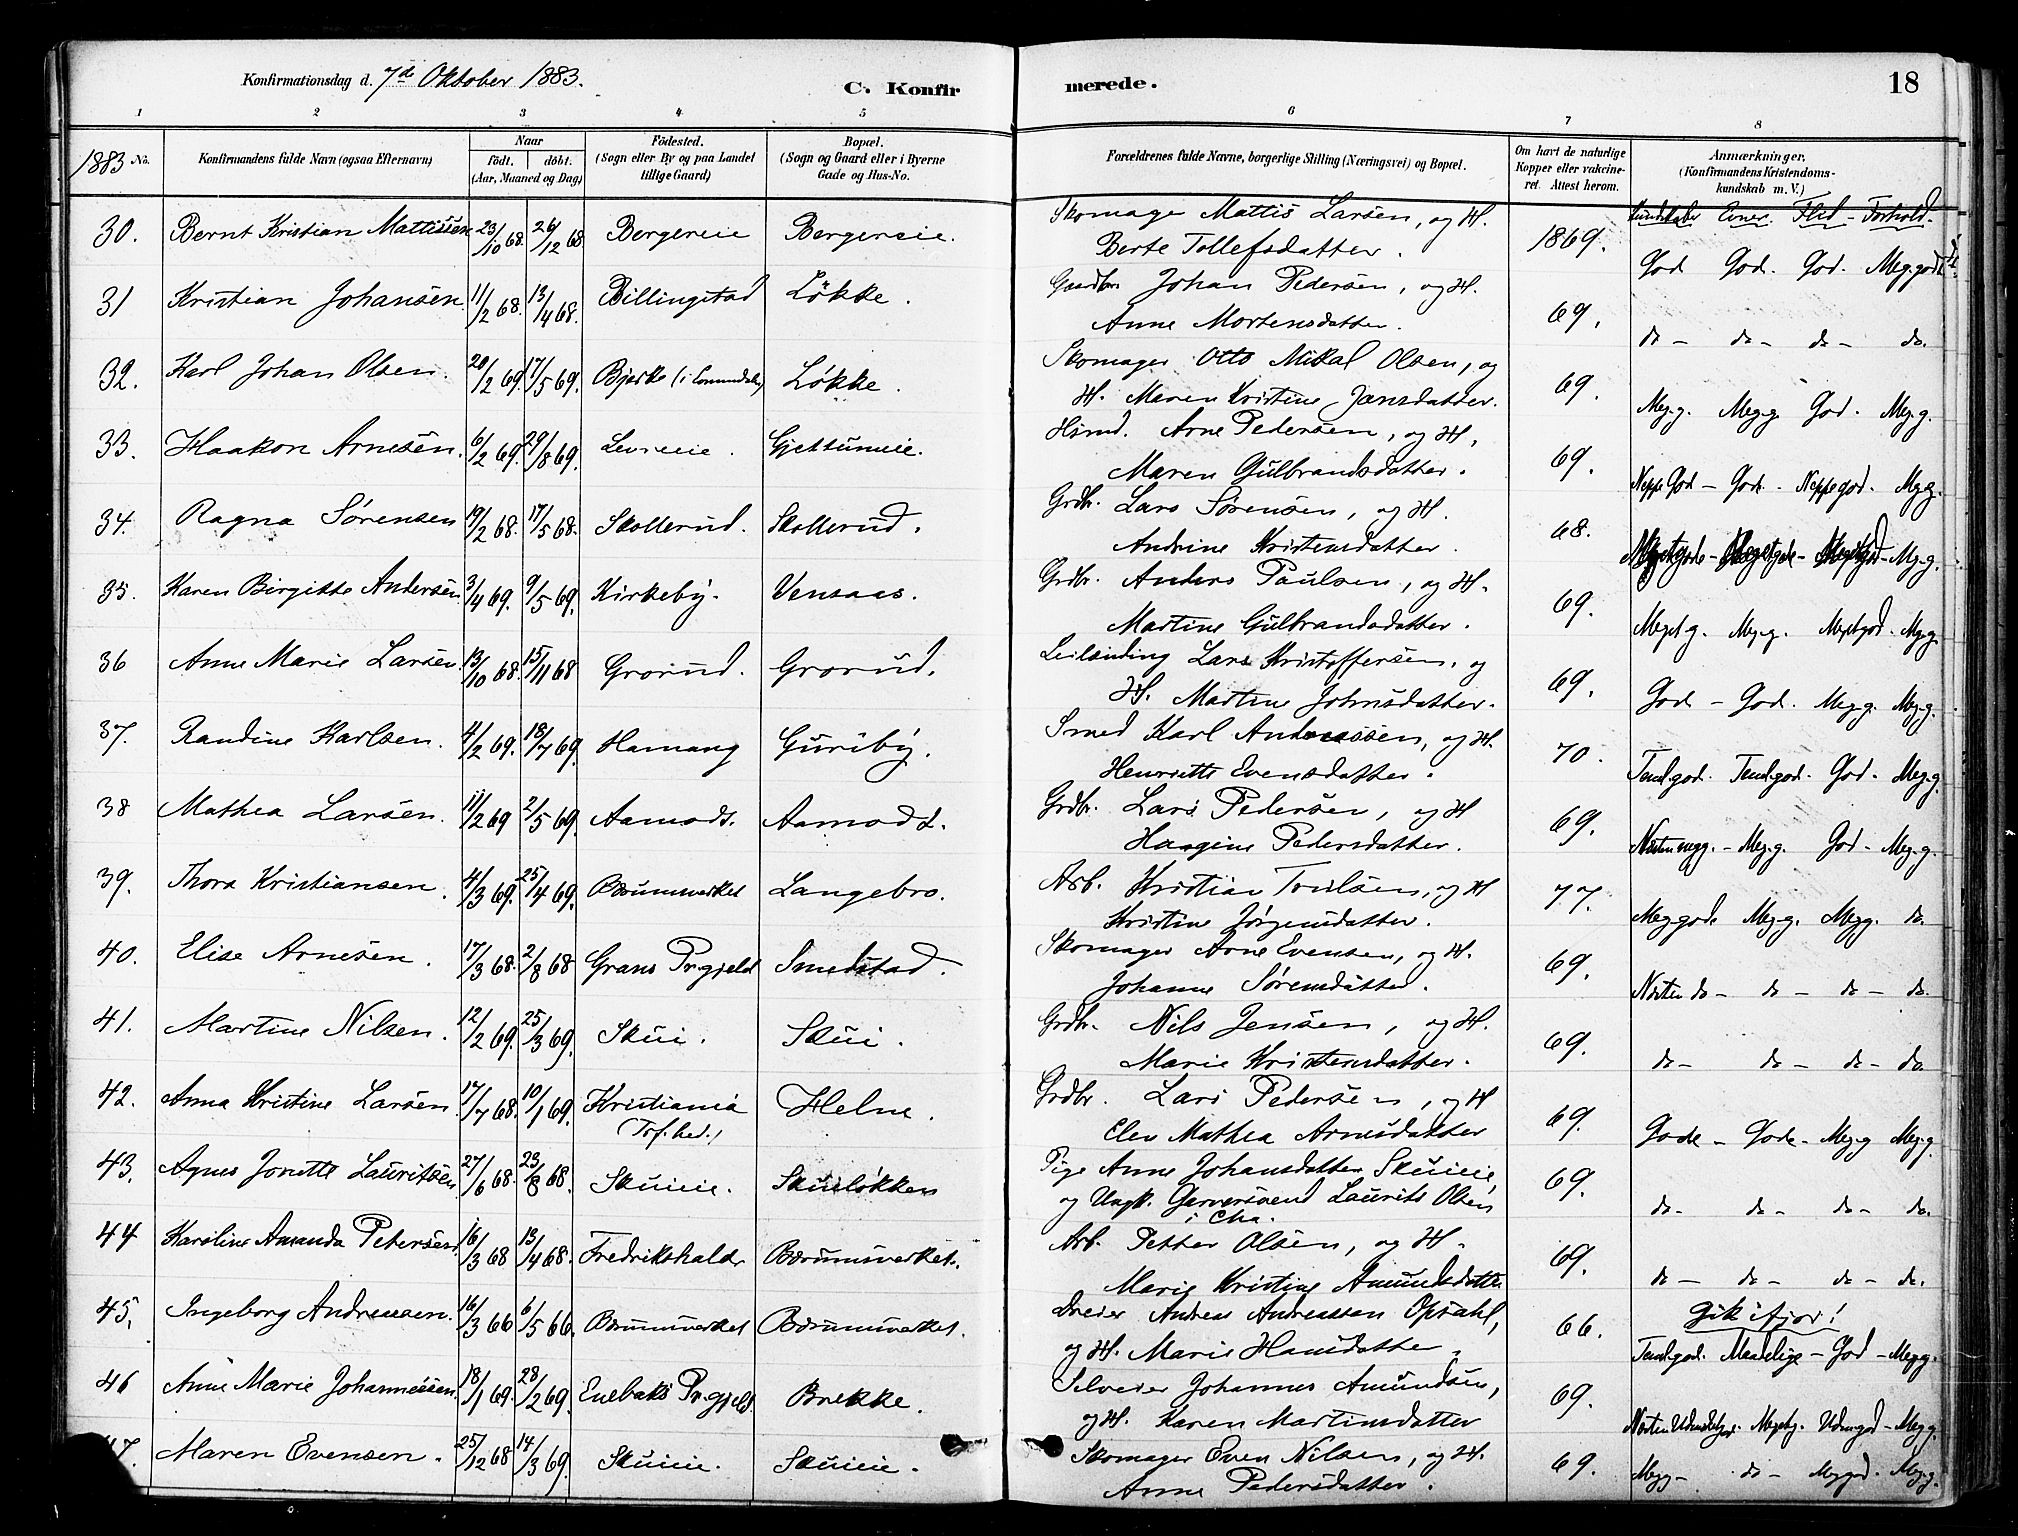 Konfirmationsdag d. 7de Oktober 1883.
C. Konfirmerede.
18
1 2 3 4 5 6 7 8
1883 No.
Konfirmandens fulde Navn (ogsaa Efternavn)
Naar
födt. döbt.
(Aar, Maaned og Dag)
Födested.
(Sogn eller By og paa Landet
tillige Gaard)
Bopæl.
(Sogn og Gaard eller i Byerne
Gade og Hus-No.
Forældrenes fulde Navne, borgerlige Stilling (Næringsvei) og Bopæl.
Om havt de naturlige
Kopper eller vakcine-
ret. Attest herom.
Anmærkninger,
(Konfirmandens Kristendoms-
kundskab m. V.)
Kundskaber Evner. Flid - Forhold.
30. Bernt Kristian Mattissen 23/10 68. 26/12 68 Bergereie Bergereie. Skomager Mattis Larsen, og H. 1869.
Berte Tollefsdatter. God God. God. Meg. godt
31 Kristian Johansen 11/2 68. 13/4 68. Billingstad Løkke. Gaardbr. Johan Pedersen, og H. 69.
Anne Mortensdatter. do - do - do - do.
32. Karl Johan Olsen. 20/2 69. 17/5 69. Bjerke Løkke. Skomager Otto Mikal Olsen, og 69.
H. Maren Kristine Jensdatter. Meg. g. Meg. g. God. Meg. g.
33. Haakon Arnesen. 6/2 69. 29/8 69. Levreeie. Gjettumeie. Husmd. Arne Pedersen, og H. 69.
Maren Gulbrandsdatter. Neppe God - God. - Neppe god. Meg. g.
34. Ragna Sørensen 19/2 68. 17/5 68. Skollerud. Skollerud. Grdbr. Lars Sørensen, og H. 68.
Andrine Kristensdatter. Meg. g.
35. Karen Birgitte Andersen. 3/4 69. 9/5 69. Kirkeby. Vensaas. Grdbr. Anders Paulsen, og H. 69.
Martine Gulbrandsdatter. Meget g. Meg. g. Meget god. Meg. g.
36 Anne Marie Larsen. 13/10 68. 15/11 68 Grorud. Grorud. Leilending Lars Kristoffersen, og 69.
H. Martine Johnsdatter. God - God. Meg. g. Meg. g.
37. Randine Karlsen. 4/2 69. 18/7 69. Hamang Guriby. Smed Karl Andreassen, og H. 70.
Henriette Evensdatter. Teml. god. Teml. god. God. Meg. g.
38 Mathea Larsen. 11/2 69 2/5 69. Aamodt. Aamodt. Grdbr. Lars Pedersen, og H 69.
Haagine Pedersdatter. Næsten meg g. - Meg. g. God - Meg. g.
39. Thora Kristiansen. 4/3 69. 25/4 69. Bærumsverket Langebro. Arb. Kristian Truelsen, og H 77.
Kristine Jørgensdatter. Meg. gode Meg. g. Meg g. do.
40. Elise Arnesen. 17/3 68. 2/8 68 Grans Prgjeld Smedstad. Skomager Arne Evensen, og H. 69.
Johanne Sørensdatter. Næsten do - do - do - do.
41. Martine Nilsen. 12/2 69. 25/3 69. Skui. Skui. Grdbr. Nils Jensen, og H. 69.
Marie Kristensdatter. do - do - do - do
42. Anna Kristine Larsen. 17/7 68. 10/1 69. Kristiania Helne. Grdbr. Lars Pedersen, og H 69.
Elen Mathea Arnesdatter Gode - Gode - Meg. g Meg. g.
43. Agnes Jonette Lauritsen 27/6 68. 23/8 68. Skuieie. Skuiløkken Pige Anne Johansdatter Skuieie, 69.
og Ungk. Garversvend Laurits Olsen
i Chra. do - do - do - do.
44 Karoline Amanda Petersen. 16/3 68 13/4 68. Fredrikshald. Bærumsverket. Arb. Petter Olsen, og H. 69.
Marie Kristine Amundsdatter do - do - do - do.
45. Ingeborg Andreassen. 16/3 66 6/5 66. Bærumsverket Bærumsverket. Dreier Andreas Andreassen Opsahl, 66. Gik ifjor!
og H. Marie Hansdatter. Teml. god. Maadelige - God - Meg g.
46 Anne Marie Johannessen. 18/1 69. 28/2 69. Enebaks Prgjeld. Brekke. Selveier Johannes Amundsen, 69.
og H. Karen Martinsdatter Næsten Udmærket god. Meget g. Udm. god - Meg. g.
47. Maren Evensen. 25/12 68 14/3 69. Skuieie. Skuieie. Skomager Even Nilsen, og H. 69.
Anne Pedersdatter. Meg g - do - Meg god. Meg. g.